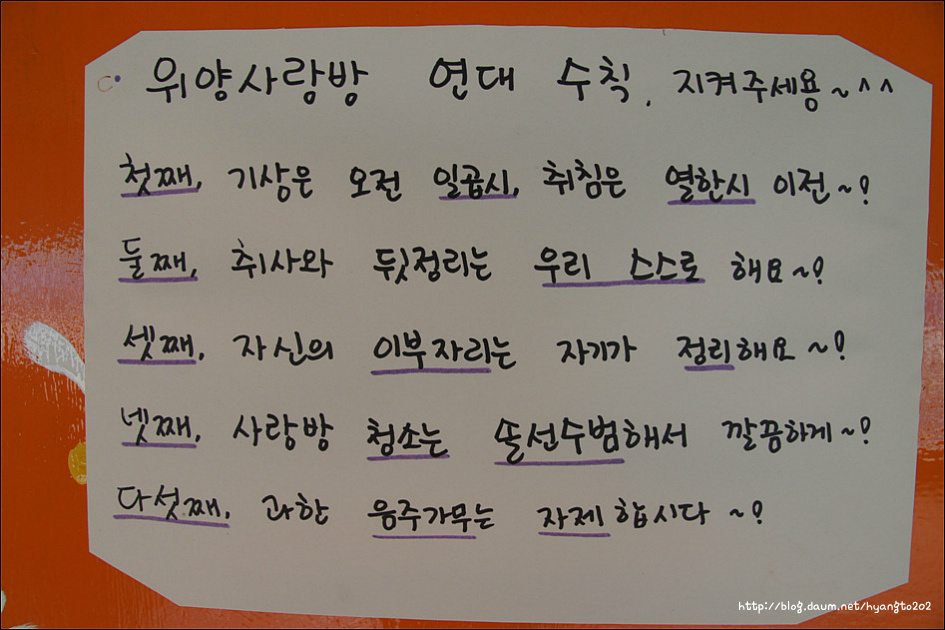 위양사랑방 연대 수칙. 지켜주세용~^^
첫째, 기상은 오전 일곱시, 취침은 열한시 이전~?
둘째, 취사와 뒷정리는 우리 스스로 해요~?
셋째, 자신의 이부자리는 자기가 정리해요~?
넷째, 사랑방 청소는 솔선수범해서 깔끔하게~?
다섯째, 과한 음주가무는 자제합시다~?
http://blog.daum.net/hyangto202